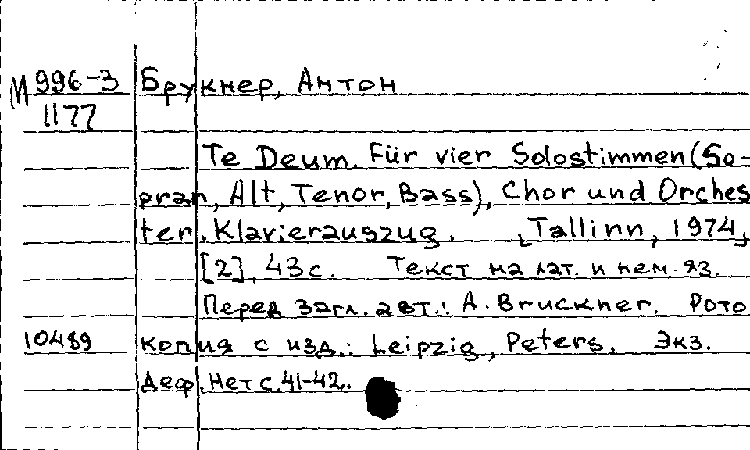 М 996-3 Брукнер, Антон
1177
Te Deum. Für vier Solostimmen (So-
pran, Alt, Tenor, Bass), Chor und Orches
ter. Klavierauszug. [Tallinn, 1974,
[2], 43 с. Текст на лат. и нем. яз.
Перед загл. авт.: A. Bruckner. Фото
10489 копия с изд.: Leipzig, Peters. Экз.
Деф. Нет с. 41-42.